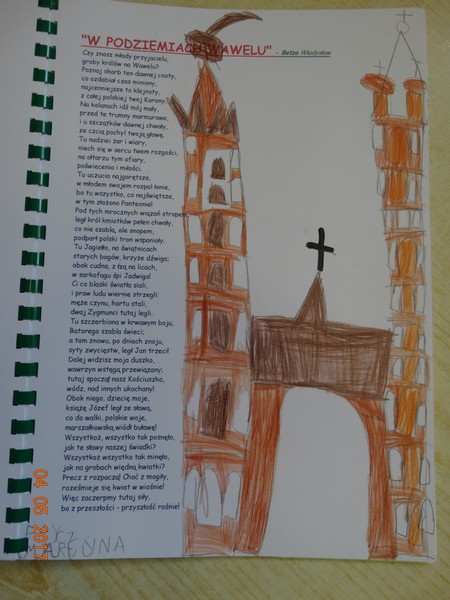 "W PODZIEMIACH WAWELU" - Bełza Władysław
Czy znasz młody przyjacielu,
groby królów na Wawelu?
Poznaj skarb ten dawnej cnoty,
co ozdabiał czas miniony,
najcenniejsze to klejnoty,
z całej polskiej twej Korony!
Na kolanach idź mój mały,
przed te trumny marmurowe,
i u szczątków dawnej chwały,
ze czcią pochyl twoją głowę.
Tu nadziei żar i wiary,
niech się w sercu twem rozgości;
na ołtarzu tym ofiary,
poświęcenia i miłości.
Tu uczucia najgorętsze,
w młodem swojem rozpal łonie,
bo tu wszystko, co najświętsze,
w tym złożono Panteonie!
Pod tych mrocznych wiązań stropem
legł król kmiotków pełen chwały,
co nie szablą, ale snopem,
podparł polski tron wspaniały.
Tu Jagiełło, na świątnicach
starych bogów, krzyże dźwiga;
obok cudna, z łzą na licach,
w sarkofagu śpi Jadwiga!
Ci co blaski światła siali,
i praw ludu wiernie strzegli:
męże czynu, hartu stali,
dwaj Zygmunci tutaj legli.
Tu szczerbiona w krwawym boju,
Batorego szabla świeci;
a tam znowu, po dniach znoju,
syty zwycięstw, legł Jan trzeci!
Dalej widzisz moja duszko,
wawrzyn wstęgą przewiązany;
tutaj spoczął nasz Kościuszko,
wódz, nad innych ukochany!
Obok niego, dziecię moje,
książę Józef legł ze sławą,
co do walki, polskie woje,
marszałkowską wiódł buławą!
Wszystkoż, wszystko tak posnęło,
jak te sławy naszej świadki?
Wszystkoż wszystko tak minęło,
jak na grobach więdną kwiatki?
Precz z rozpaczą! Choć z mogiły,
roześmieje się kwiat w wiośnie!
Więc zaczerpmy tutaj siły,
bo z przeszłości - przyszłość rośnie!
MARCYNA
04 05 2017